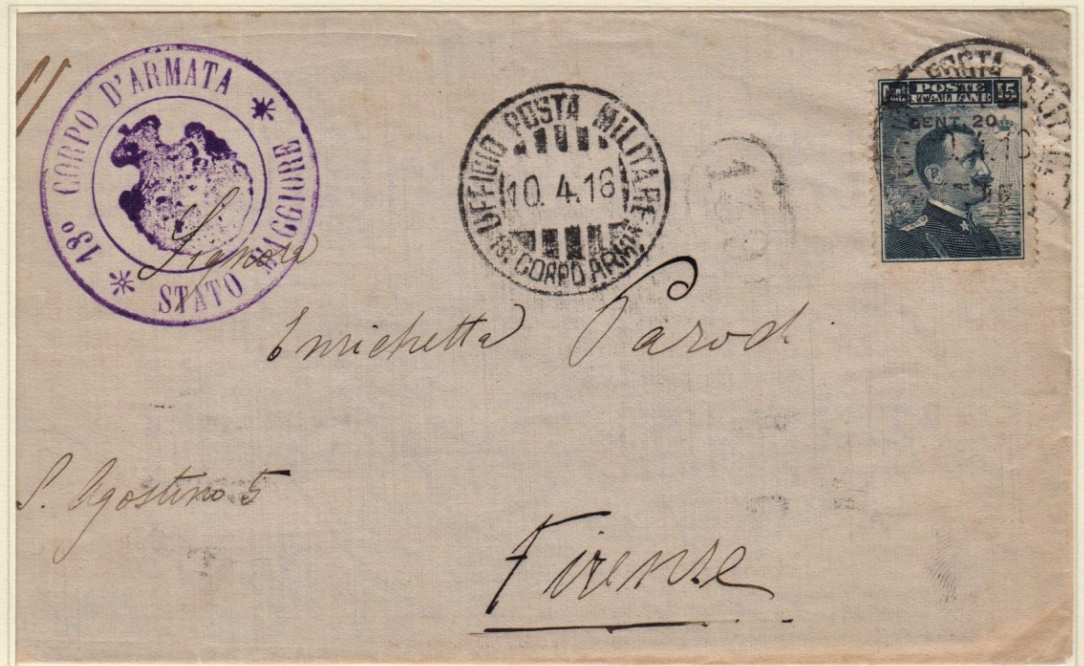 13º CORPO D'ARMATA
STATO MAGGIORE
UFFICIO POSTA MILITARE
10.4.16
13º CORPO ARM
POSTA MILITARE
POSTE
ITALIANE
15
CENT. 20
Signora
Enrichetta Parodi
S. Agostino 5
Firenze